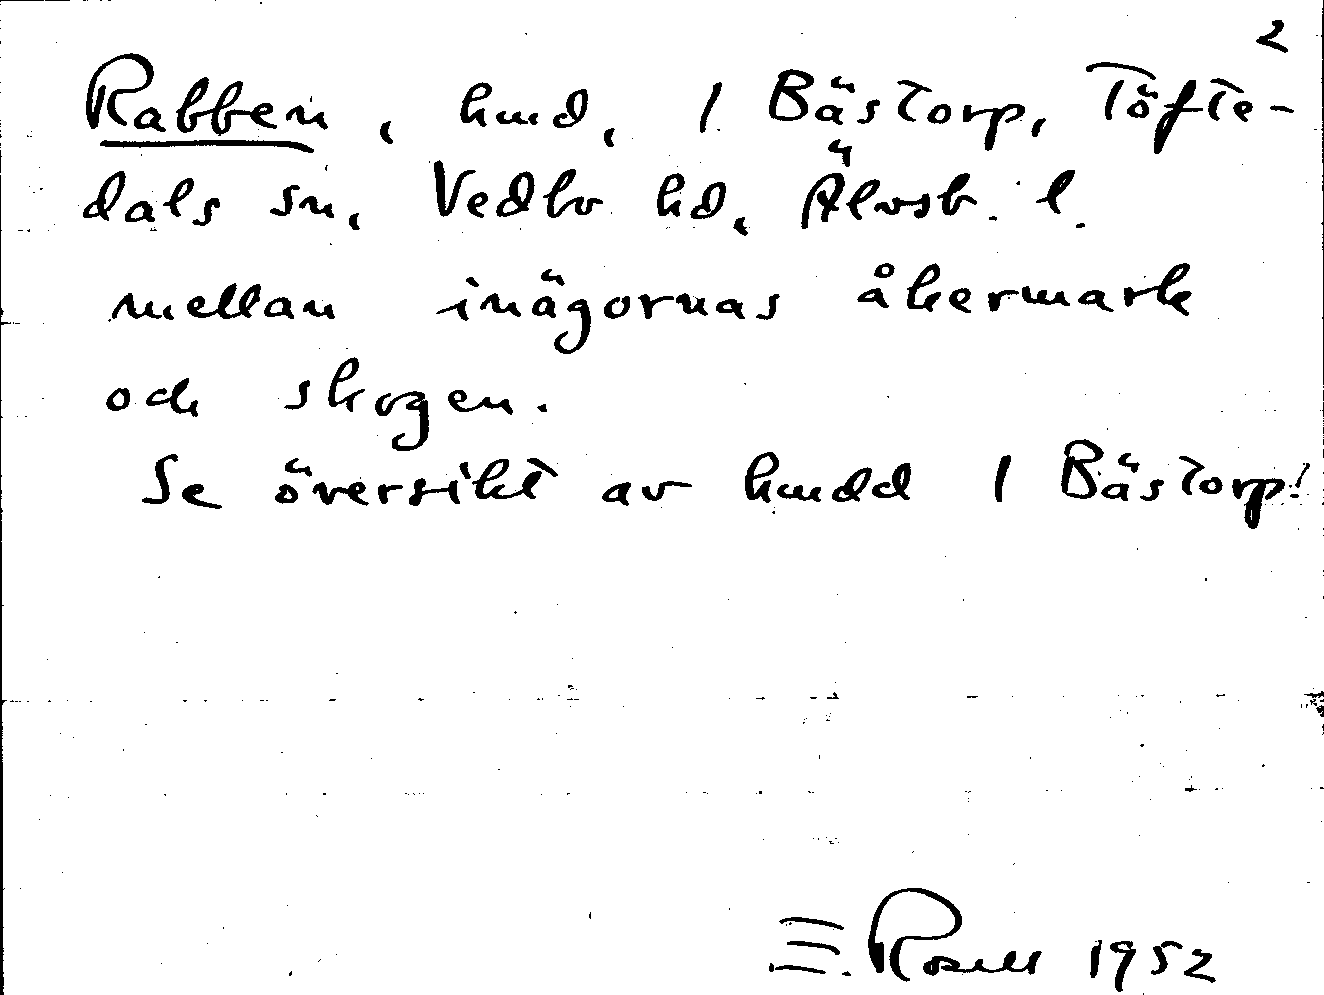 2
Rabben, hmd, 1 Bästorp, Töfte-
dals sn, Vedbo hd, Älvsb. l.
mellan inägornas åkermark
och skogen.
Se översikt av hmdd 1 Bästorp!
E. Rosell 1952